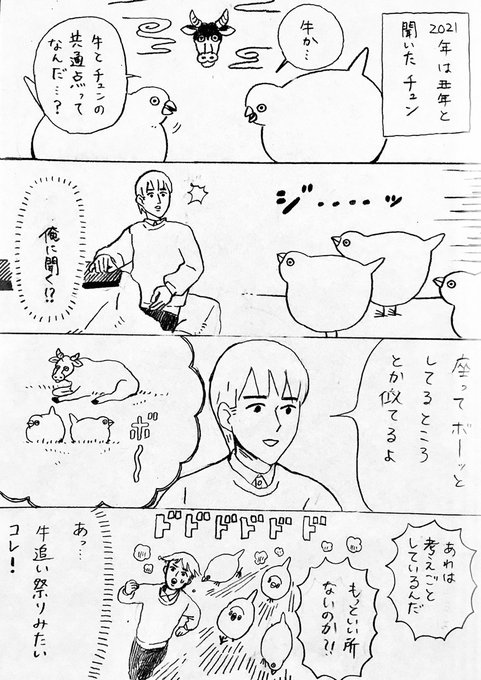 2021
年は丑年と
聞いたチュン
牛か…
牛とチュンの
共通点って
なんだ…?
ジ・・・・ッ
俺に聞く!?
座ってボーッと
してるところ
とか似てるよ
ボ〜
あれは
考えごと
しているんだ
もっといい所
ないのか?!
ドドドドドド
あっ…
牛追い祭りみたい
コレ!